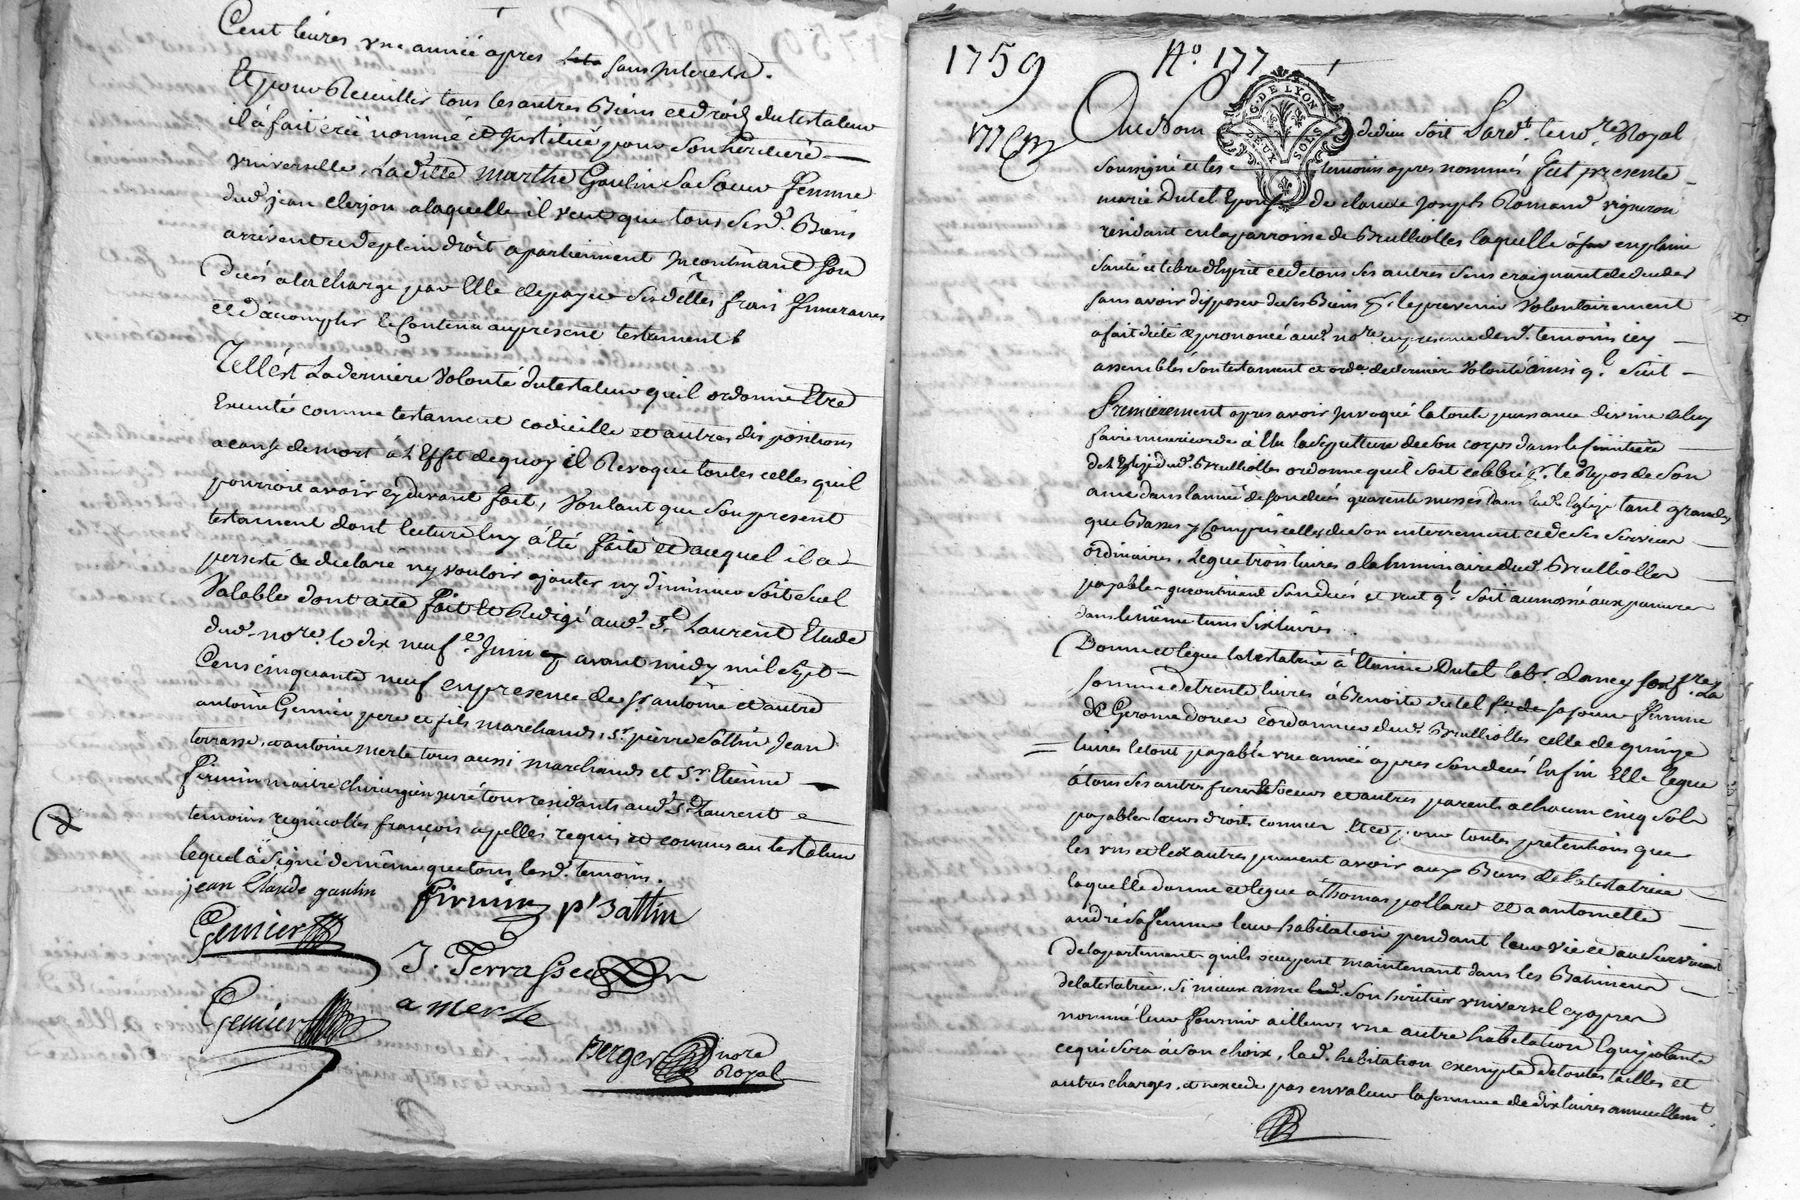 Cent livres une année apres sans Interests.
Et pour Recuillir tous les autres Biens et droits du testateur
il à fait créé nommé et Institué pour Son herdiere
universelle, Ladite marthe Gaulin Sa Soeur femme
dud. jean clerjon a laquelle il veut que tous Sesd. Biens
arrivent et de plein droit apartiennent Incontinant Son
Decès a la charge par Elle de payer Sesdittes frais funeraires
et d'acomplir le Contenu au present testament
Tell'est La derniere volonté du testateur qu'il ordonne Etre
Executée comme testament codicille et autres dispositions
a cause de mort à l'Effet de quoy il Revoque toutes celles qu'il
pourroit avoir cy devant fait, Voulant que Son present
testament dont lecture luy à Eté faite et auquel il a
persisté et déclaré n'y vouloir ajouter ny diminuer Soit Seul
Valable dont acte fait et Redigé aud. St. Laurent Etude
dud. nore. le dix neufe. Juin avant midy mil Sept
Cens cinquante neuf en presence de Sr. antoine et autre
antoine Gemier pere et fils marchands, Sr. pierre Sattin Jean
terrasse, et antoine merle tous aussi marchands et Sr. Etienne
firmin maitre chirurgien juré tous residants aud. St. Laurent
temoins regnicolles françois apellés requis et connus au testateur
lequel à Signé de même que tous lesd. temoins.
jean Claude gaulin
firmin p. Sattin
Gemier
J. Terrasse
Gemier
a merle
Berger nore
Royal
1759 No. 177
G. DE LYON
DEUX SOLS
Au Nom de dieu Soit Pardt. le nore. Royal
Soussigné et les temoins apres nommés fut presente
marie Dutel Epouse de claude Joseph Romand vigneron
residant en la parroisse de Brulliolles laquelle en plaine
Santé et libre d'Esprit et de tous Ses autres Sens craignant de deceder
Sans avoir disposer de Ses Biens pr. le prevenir Volontairement
a fait dicté et prononcé aud. nore. en presence desd. temoins icy
assemblés Son testament et ordce. de derniere Volonté ainsi q. Suit
Premierement apres avoir Invoqué la toute puissance divine de luy
faire misericorde à Elu la Sepulture de Son corps dans le Simitiere
de l'Eglise dud. Brulliolles ordonne qu'il Soit celebré pr. le Repos de Son
ame dans l'année de Son decès quarente messes dans lad. Eglise tant grandes
que Basses y Compris celles de Son enterrement et de Ses Services
ordinaires. Legue trois livres a la luminaire dud. Brulliolles
payable Incontinant Son decès et veut q. Soit aumosné aux pauvres
dans le même tems Six livres.
Donne et legue la testatrice à Etienne Dutel labr. d'ancy Son fre. La
Somme de trente livres à Benoite dutel Sa Soeur femme
de Gerome cordonnier dud. Brulliolles celle de quinze
livres le tout payable une année apres Son decès Enfin Elle legue
à tous Ses autres freres et Soeurs et autres parents a chacun cinq Sols
payables leurs droits connus. Et ce pour toutes pretentions que
les uns et les autres peuvent avoir aux Biens de la testatrice
laquelle donne et legue à Thomas pollard et a antoinette
andré Sa femme leur habitation pendant leur vie et au Survivant
de l'apartement qu'ils occupent maintenant dans les Batimens
de la testatrice. Si mieux aime Son heritier universel cy apres
nommé leur fournir ailleurs une autre habitation Equipolante
ce qui Sera à Son choix, lad. habitation exempte de toutes tailles et
autres charges. et n'excede pas en valeur la Somme de dix livres annuellemt.